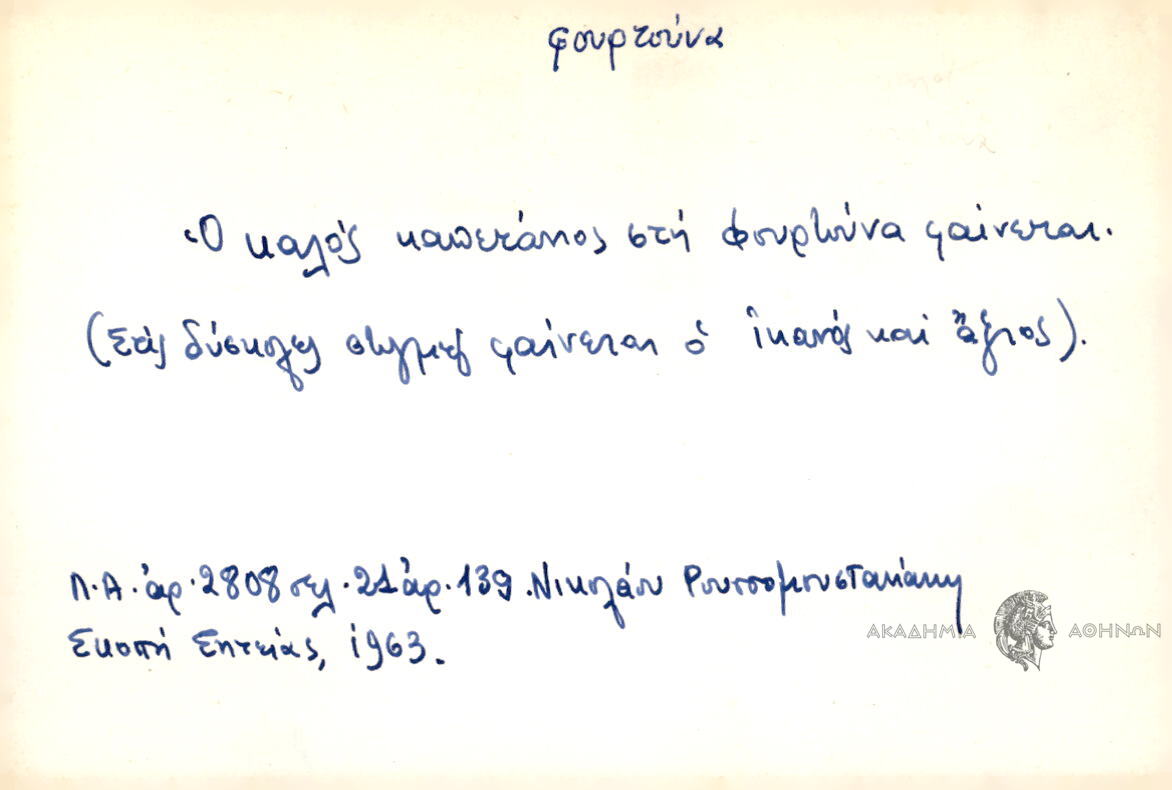 φουρτούνα
Ὁ καλός καπετάνιος στή φουρτούνα φαίνεται.
(Στίς δύσκολες στιγμές φαίνεται ὁ ἱκανός καί ἄξιος).
Λ.Α. ἀρ. 2808 σελ. 21 ἀρ. 139. Νικολάου Ρουσσομουστακάκη
ΑΚΑΔΗΜΙΑ ΑΘΗΝΩΝ
Σκοπή Σητείας, 1963.